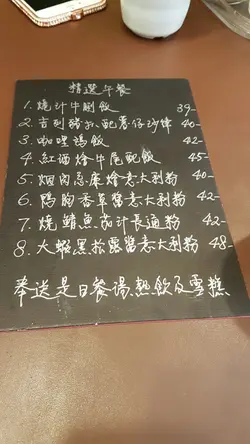 精選午餐
1. 燒汁牛脷飯 39-
2. 吉列豬扒配薯仔沙律 40-
3. 咖哩鴿飯 42-
4. 紅酒燴牛尾配飯 45-
5. 烟肉忌廉燴意大利粉 40-
6. 鴨胸香草醬意大利粉 42-
7. 燒鯖魚茄汁長通粉 42-
8. 大蝦黑松露醬意大利粉 48-
奉送是日餐湯熱飲及雪糕